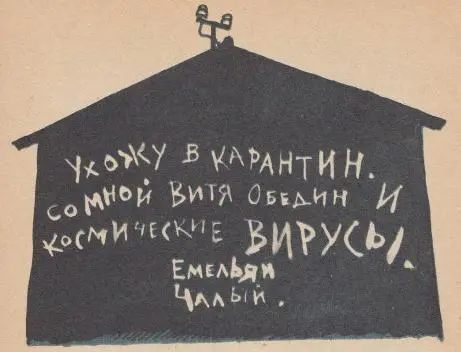 Ухожу в карантин.
со мной Витя Обедин и
космические ВИРУСЫ.
Емельян
Чалый.